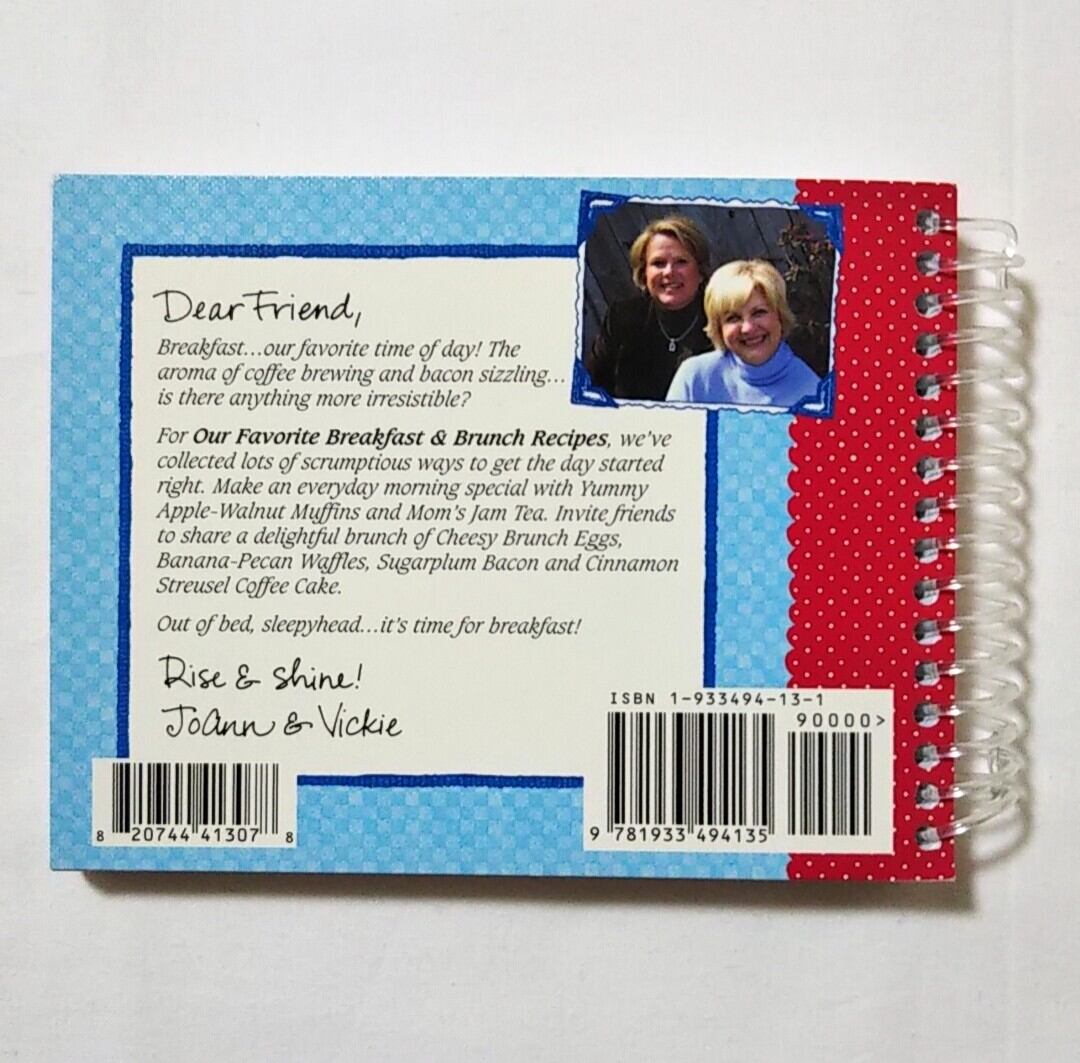 Dear Friend,
Breakfast...our favorite time of day! The
aroma of coffee brewing and bacon sizzling...
is there anything more irresistible?
For Our Favorite Breakfast & Brunch Recipes, we've
collected lots of scrumptious ways to get the day started
right. Make an everyday morning special with Yummy
Apple-Walnut Muffins and Mom's Jam Tea. Invite friends
to share a delightful brunch of Cheesy Brunch Eggs,
Banana-Pecan Waffles, Sugarplum Bacon and Cinnamon
Streusel Coffee Cake.
Out of bed, sleepyhead...it's time for breakfast!
Rise & shine!
JoAnn & Vickie
8 20744 41307 8
ISBN 1-933494-13-1
90000>
9 781933 494135